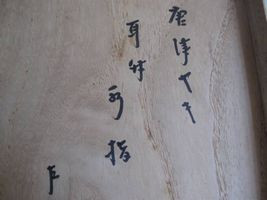 唐津ヤキ
耳付
水指